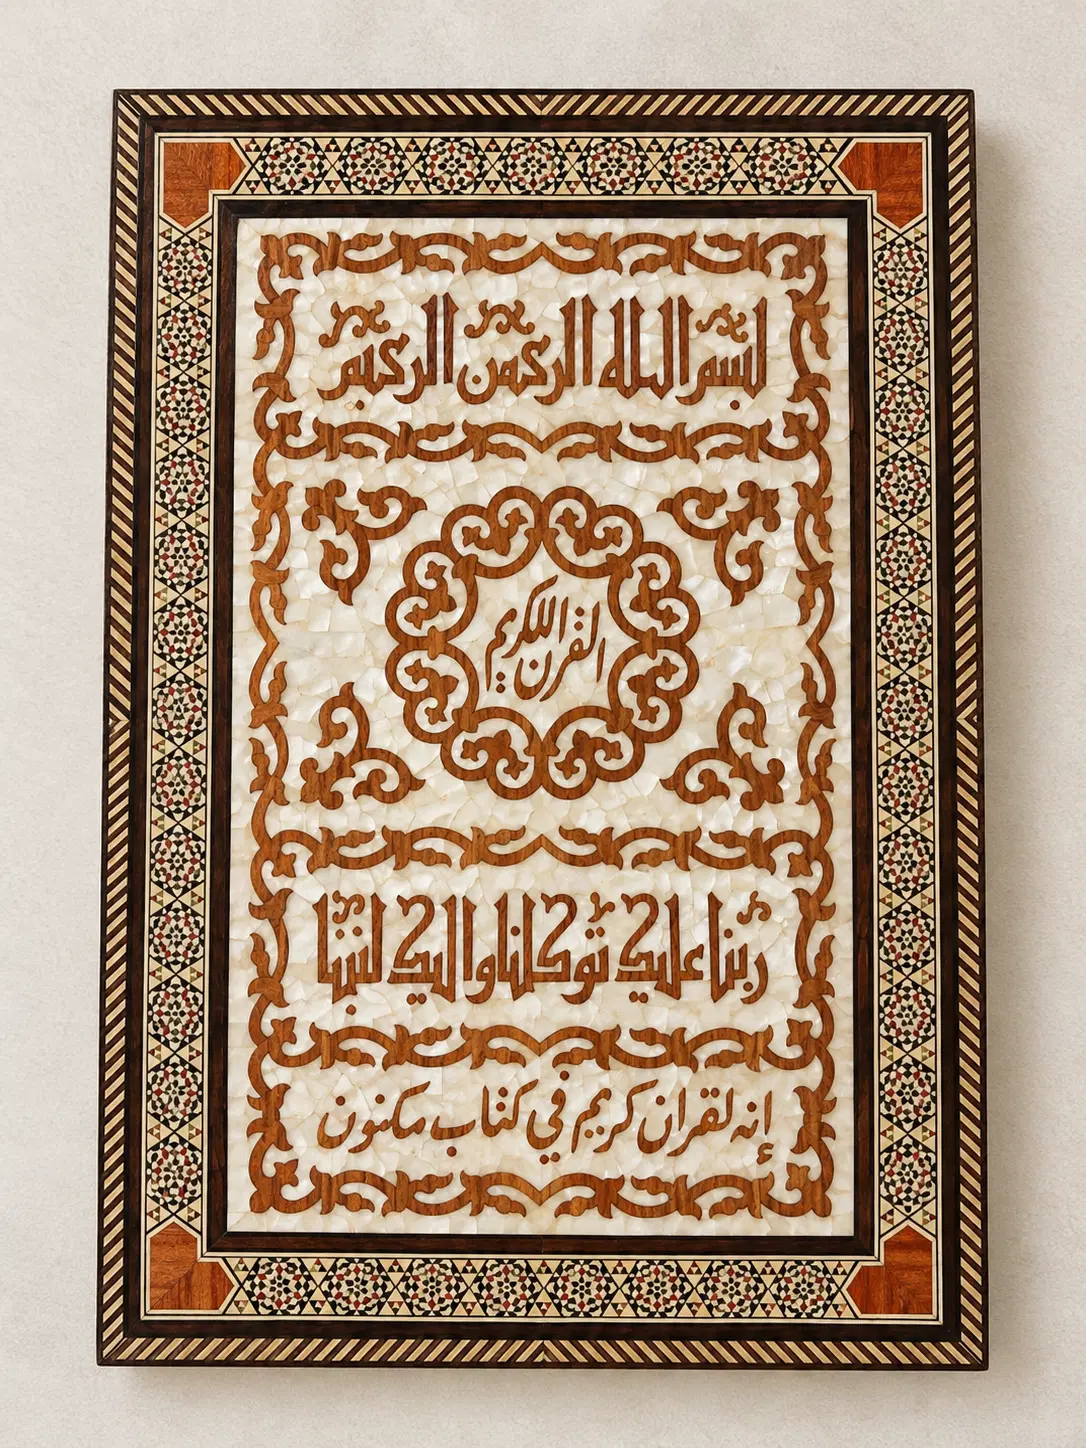 بسم الله الرحمن الرحيم
القرن
الكريم
ربنا عليك توكلنا واليك
إنه لقران كريم في كتاب مكنون